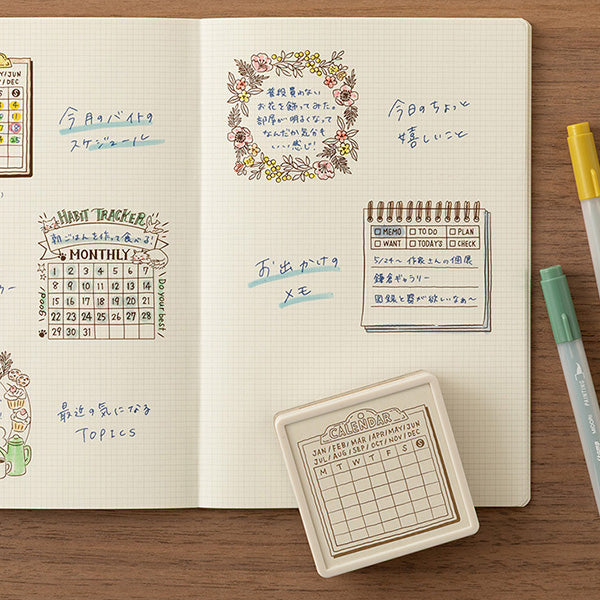 今月のバイトの
スケジュール
HABIT TRACKER
朝ごはんを作って食べる!
MONTHLY
1 2 3 4 5 6 7
8 9 10 11 12 13 14
15 16 17 18 19 20 21
22 23 24 25 26 27 28
29 30 31
Good!
Do your best!
最近の気になる
TOPICS
普段買わない
お花を飾ってみた。
部屋が明るくなって
なんだか気分も
いい感じ!
今日のちょっと
嬉しいこと
お出かけの
メモ
MEMO TO DO PLAN
WANT TODAY'S CHECK
5/24~ 作家さんの個展
鎌倉ギャラリー
図録と器が欲しいなぁ~
CALENDAR
JAN/FEB/MAR/APR/MAY/JUN
JUL/AUG/SEP/OCT/NOV/DEC
M T W T F S S
MIDORI
PAINTING